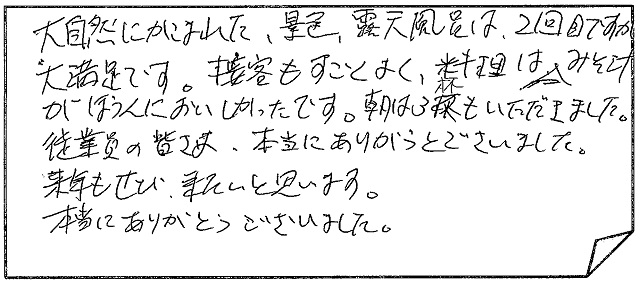 大自然にかこまれた、景色、露天風呂は、2回目ですが
大満足です。接客もすごくよく、料理は、みそしる
がほうんにおいしかったです。朝は3杯もいただきました。
従業員の皆さま、本当にありがとうございました。
来年もぜひ、来たいと思います。
本当にありがとうございました。